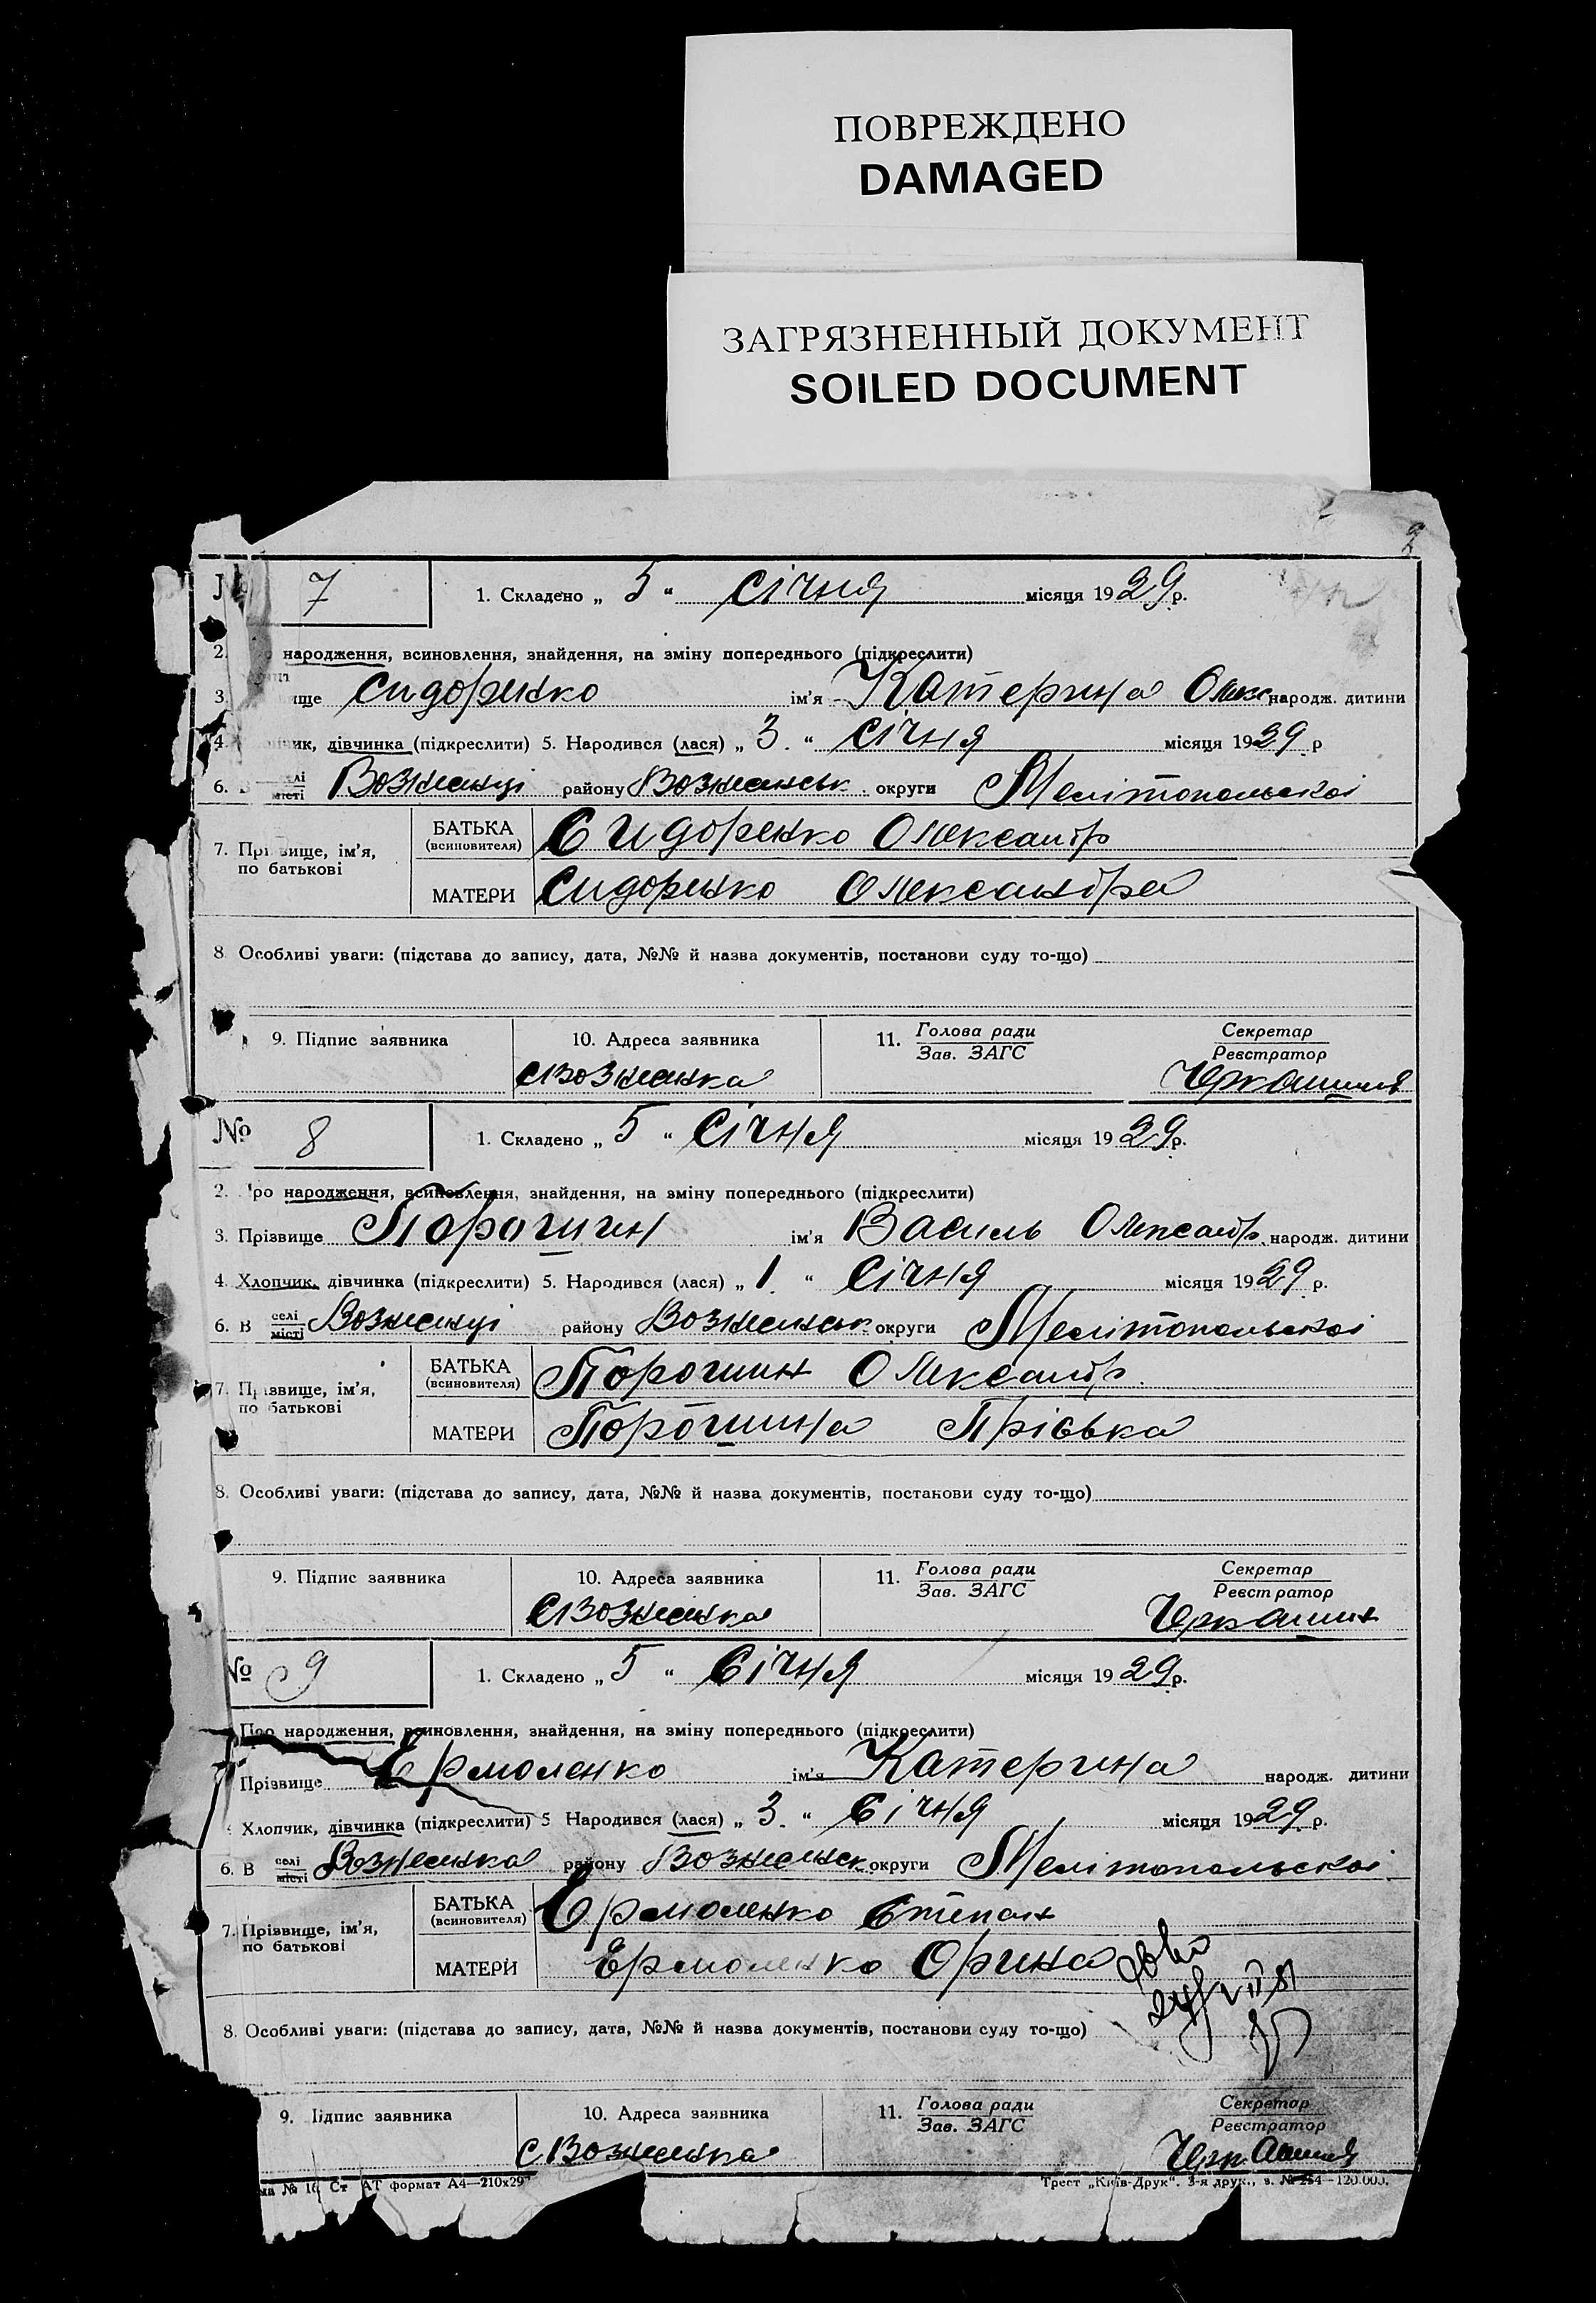 ПОВРЕЖДЕНО
DAMAGED
ЗАГРЯЗНЕННЫЙ ДОКУМЕНТ
SOILED DOCUMENT
2
7 1. Складено „ 5 “ Січня місяця 1929 р.
2. народження, всиновлення, знайдення, на зміну попереднього (підкреслити)
3. ище Сидоренко ім’я Катерина Олекс народж. дитини
4. чик, дівчинка (підкреслити) 5. Народився (лася) „ 3 “ Січня місяця 1929 р
6. В селі місті Вознесенці району Вознесенськ. округи Мелітопольскоі
7. Прізвище, ім’я, по батькові
БАТЬКА (всиновителя) Сидоренко Олександр
МАТЕРИ Сидоренко Олександра
8 Особливі уваги: (підстава до запису, дата, №№ й назва документів, постанови суду то-що)
9. Підпис заявника 10. Адреса заявника 11. Голова ради Секретар
Зав. ЗАГС Реєстратор
с Вознесенка
№ 8 1. Складено „ 5 “ Січня місяця 1929 р.
2. Про народження, всиновлення, знайдення, на зміну попереднього (підкреслити)
3. Прізвище Порошин ім’я Василь Олександр. народж. дитини
4. Хлопчик, дівчинка (підкреслити) 5. Народився (лася) „ 1 “ Січня місяця 1929 р.
6. В селі місті Вознесенці району Вознесенськ. округи Мелітопольскоі
7. Прізвище, ім’я, по батькові
БАТЬКА (всиновителя) Порошин Олександр.
МАТЕРИ Порошина Пріська
8. Особливі уваги: (підстава до запису, дата, №№ й назва документів, постанови суду то-що)
9. Підпис заявника 10. Адреса заявника 11. Голова ради Секретар
Зав. ЗАГС Реєстратор
с Вознесенка
№ 9 1. Складено „ 5 “ Січня місяця 1929 р.
Про народження, всиновлення, знайдення, на зміну попереднього (підкреслити)
Прізвище Ермоленко ім’я Катерина народж. дитини
Хлопчик, дівчинка (підкреслити) 5 Народився (лася) „ 3. “ Січня місяця 1929 р.
6. В селі місті Вознесенка району Вознесенск округи Мелітопольскоі
7. Прізвище, ім’я, по батькові
БАТЬКА (всиновителя) Ермоленко Степан
МАТЕРИ Ермоленко Орина
8. Особливі уваги: (підстава до запису, дата, №№ й назва документів, постанови суду то-що)
9. Підпис заявника 10. Адреса заявника 11. Голова ради Секретар
Зав. ЗАГС Реєстратор
с Вознесенка
ма № 16 Ст АТ формат А4—210х297 Трест „Київ-Друк“. 3-я друк., з. № 254—120.000.